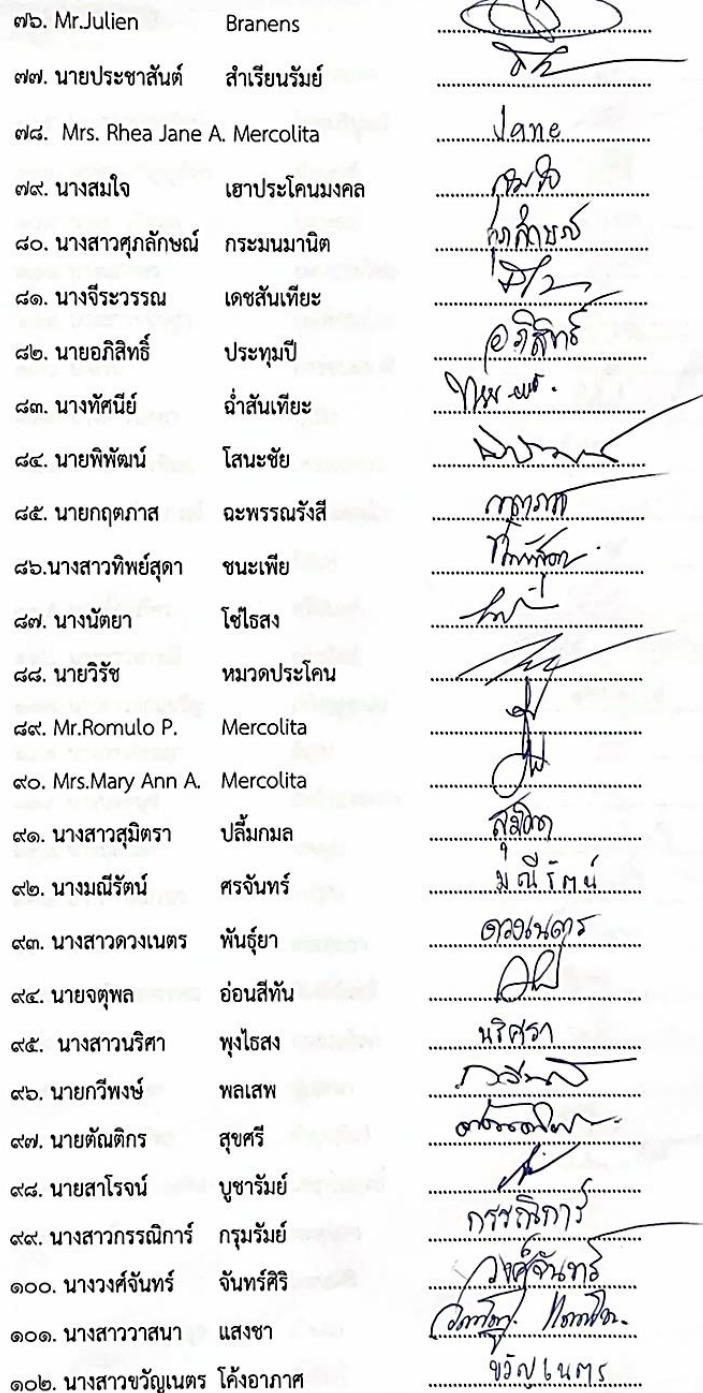 ๗๖. Mr.Julien Branens
๗๗. นายประชาสันต์ สำเรียนรัมย์
๗๘. Mrs. Rhea Jane A. Mercolita Jane
๗๙. นางสมใจ เฮาประโคนมงคล สมใจ
๘๐. นางสาวศุภลักษณ์ กระมนมานิต ศุภลักษณ์
๘๑. นางจีระวรรณ เดชสันเทียะ
๘๒. นายอภิสิทธิ์ ประทุมปี อภิสิทธิ์
๘๓. นางทัศนีย์ ฉ่ำสันเทียะ
๘๔. นายพิพัฒน์ โสนะชัย
๘๕. นายกฤตภาส ฉะพรรณรังสี
๘๖.นางสาวทิพย์สุดา ชนะเพีย
๘๗. นางนัตยา โชไธสง
๘๘. นายวิรัช หมวดประโคน
๘๙. Mr.Romulo P. Mercolita
๙๐. Mrs.Mary Ann A. Mercolita
๙๑. นางสาวสุมิตรา ปลิ้มกมล
๙๒. นางมณีรัตน์ ศรจันทร์ มณีรัตน์
๙๓. นางสาวดวงเนตร พันธุ์ยา ดวงเนตร
๙๔. นายจตุพล อ่อนสีทัน
๙๕. นางสาวนริศา พุงไธสง นริศรา
๙๖. นายกวีพงษ์ พลเสพ
๙๗. นายตัณติกร สุขศรี
๙๘. นายสาโรจน์ บูชารัมย์
๙๙. นางสาวกรรณิการ์ กรุมรัมย์ กรรณิการ์
๑๐๐. นางวงศ์จันทร์ จันทร์ศิริ วงศ์จันทร์
๑๐๑. นางสาววาสนา แสงชา
๑๐๒. นางสาวขวัญเนตร โค้งอาภาศ ขวัญเนตร